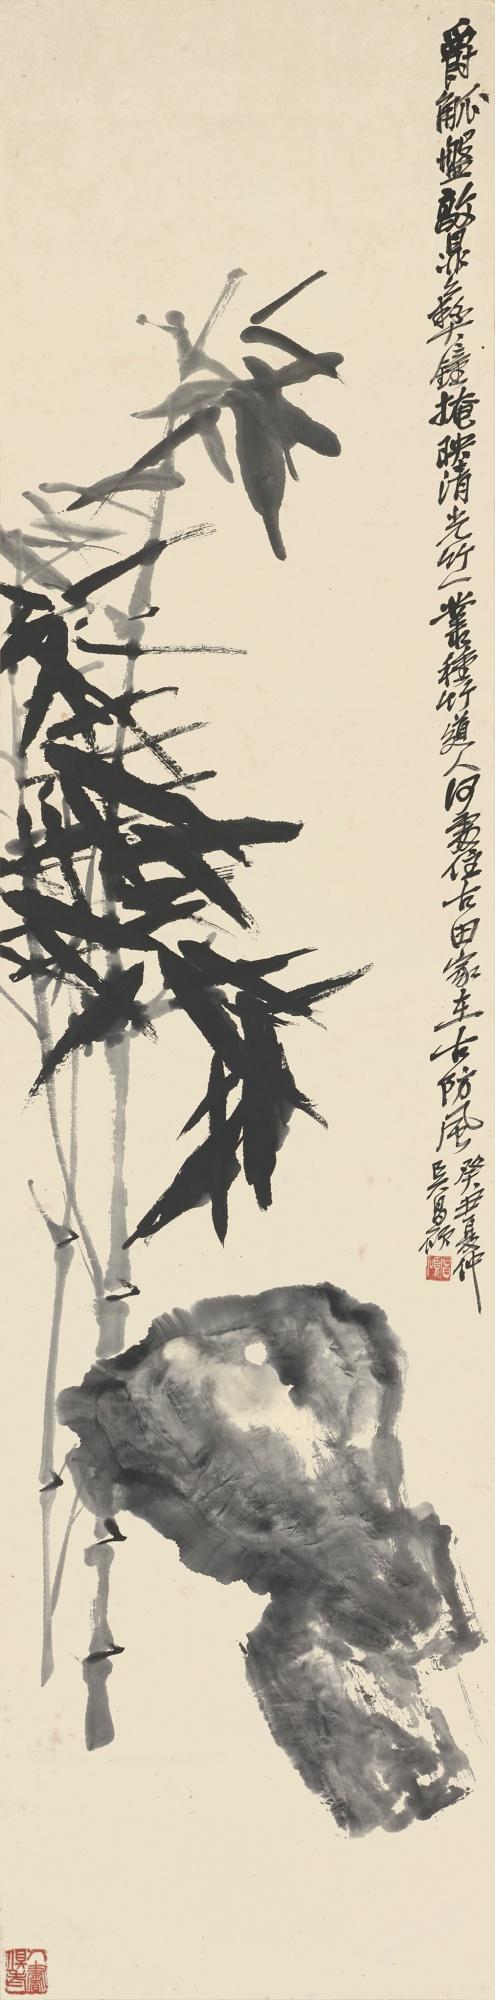 爵觚盤敦鼎彝鐘掩映清光竹一叢種竹道人何處住古田家在古防風
癸丑夏仲
吳昌碩